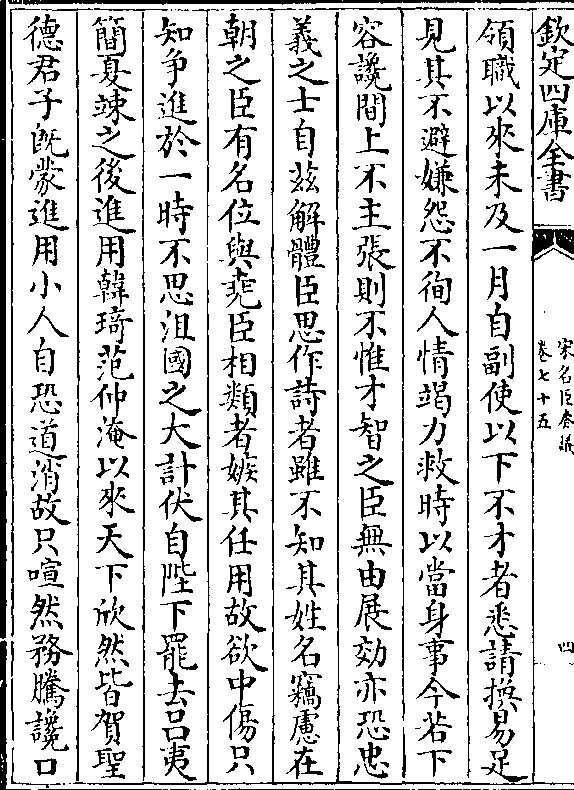 欽定四庫全書
宋名臣奏議
卷七十五
四
領職以來未及一月自副使以下不才者悉請換易足
見其不避嫌怨不徇人情竭力救時以當身事今若下
容讒間上不主張則不惟才智之臣無由展効亦恐忠
義之士自兹解體臣思作詩者雖不知其姓名竊慮在
朝之臣有名位與堯臣相類者嫉其任用故欲中傷只
知争進於一時不思沮國之大計伏自陛下罷去吕夷
簡夏竦之後進用韓琦范仲淹以來天下欣然皆賀聖
德君子既蒙進用小人自恐道消故只喧然務騰讒口